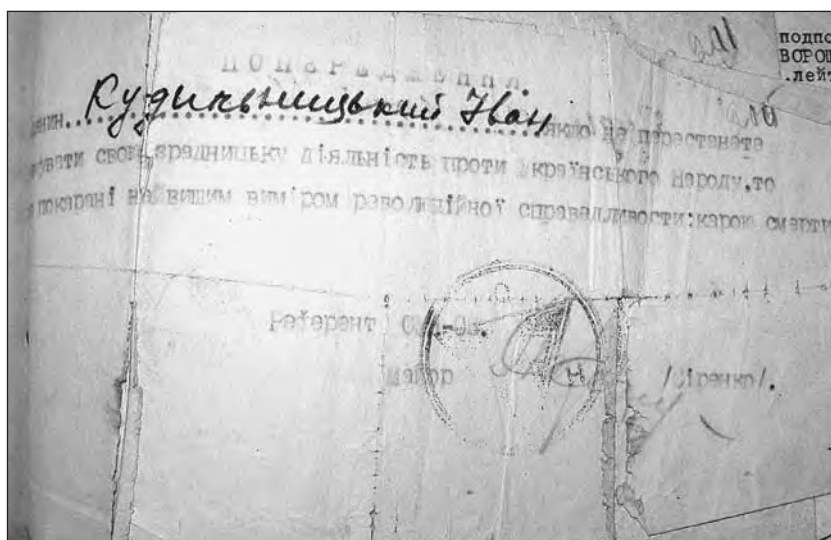 подпо
ВОРОШ
.лейт
ПОПЕРЕДЖЕННЯ
Кудильницький Іван якщо не перестанете
свою зрадницьку діяльність проти Українського Народу, то
покарані найвищим виміром революційної справедливости: карою смерти
Референт
майор /Сіренко/.